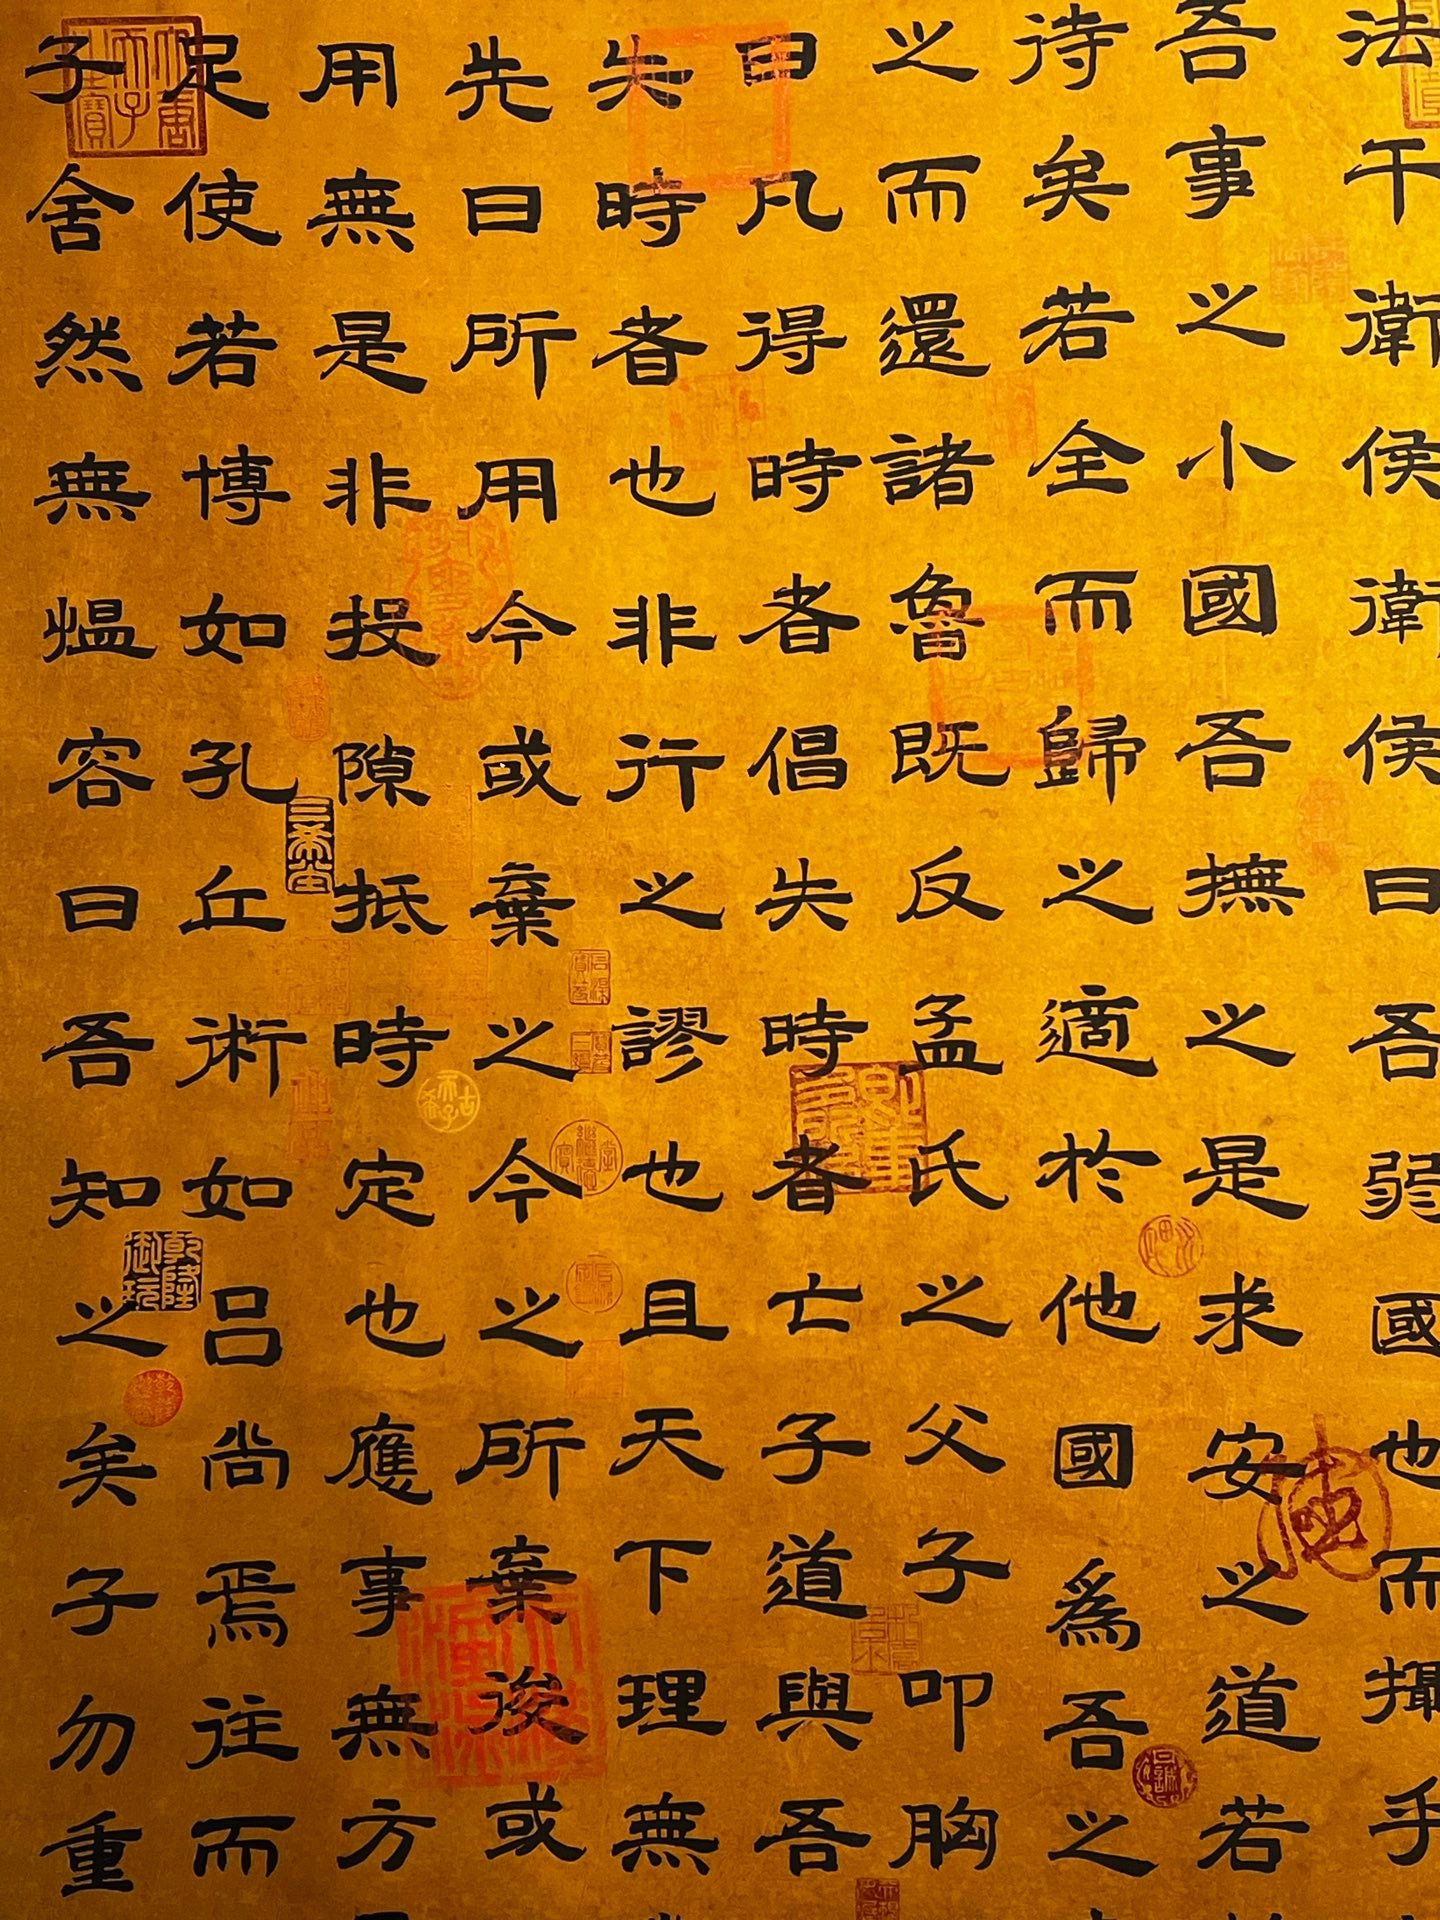 法干衛侯衛侯曰吾弱國也而攝乎
吾事之小國吾撫之是求安之道若
待矣若全而歸之適於他國爲吾之
之而還諸魯既反孟氏之父子叩胸
曰凡得時者倡失時者亡子道與吾
失時者也非行之謬也且天下理無
先日所用今或棄之今之所棄後或
用無是非投隙抵時定也應事無方
足使若博如孔丘術如呂尚焉往而
子舍然無愠容曰吾知之矣子勿重
乾隆御玩
三希堂